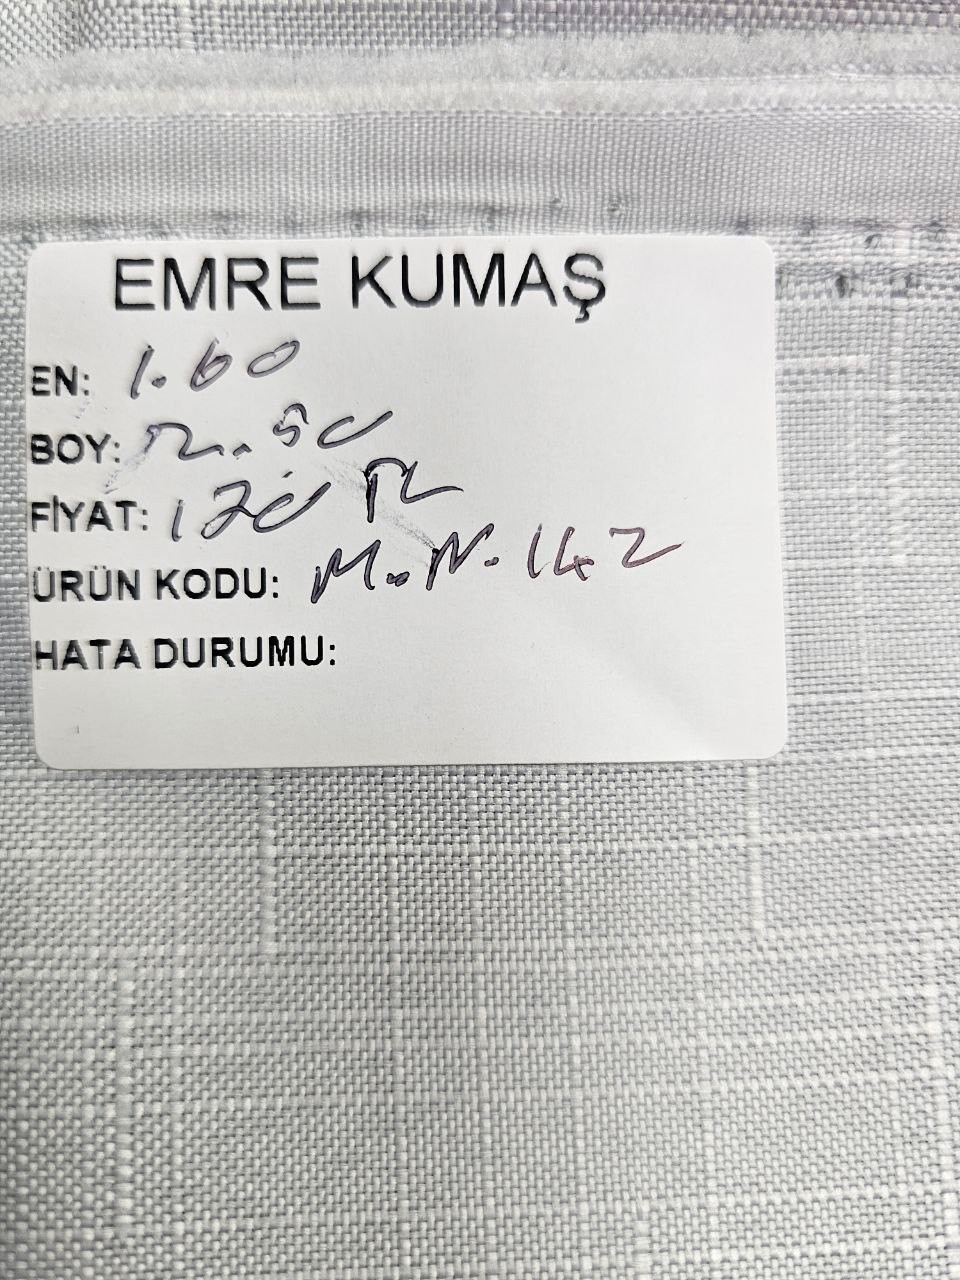 EMRE KUMAŞ
EN: 1.60
BOY: 2.50
FİYAT: 120 TL
ÜRÜN KODU: M.N.142
HATA DURUMU: